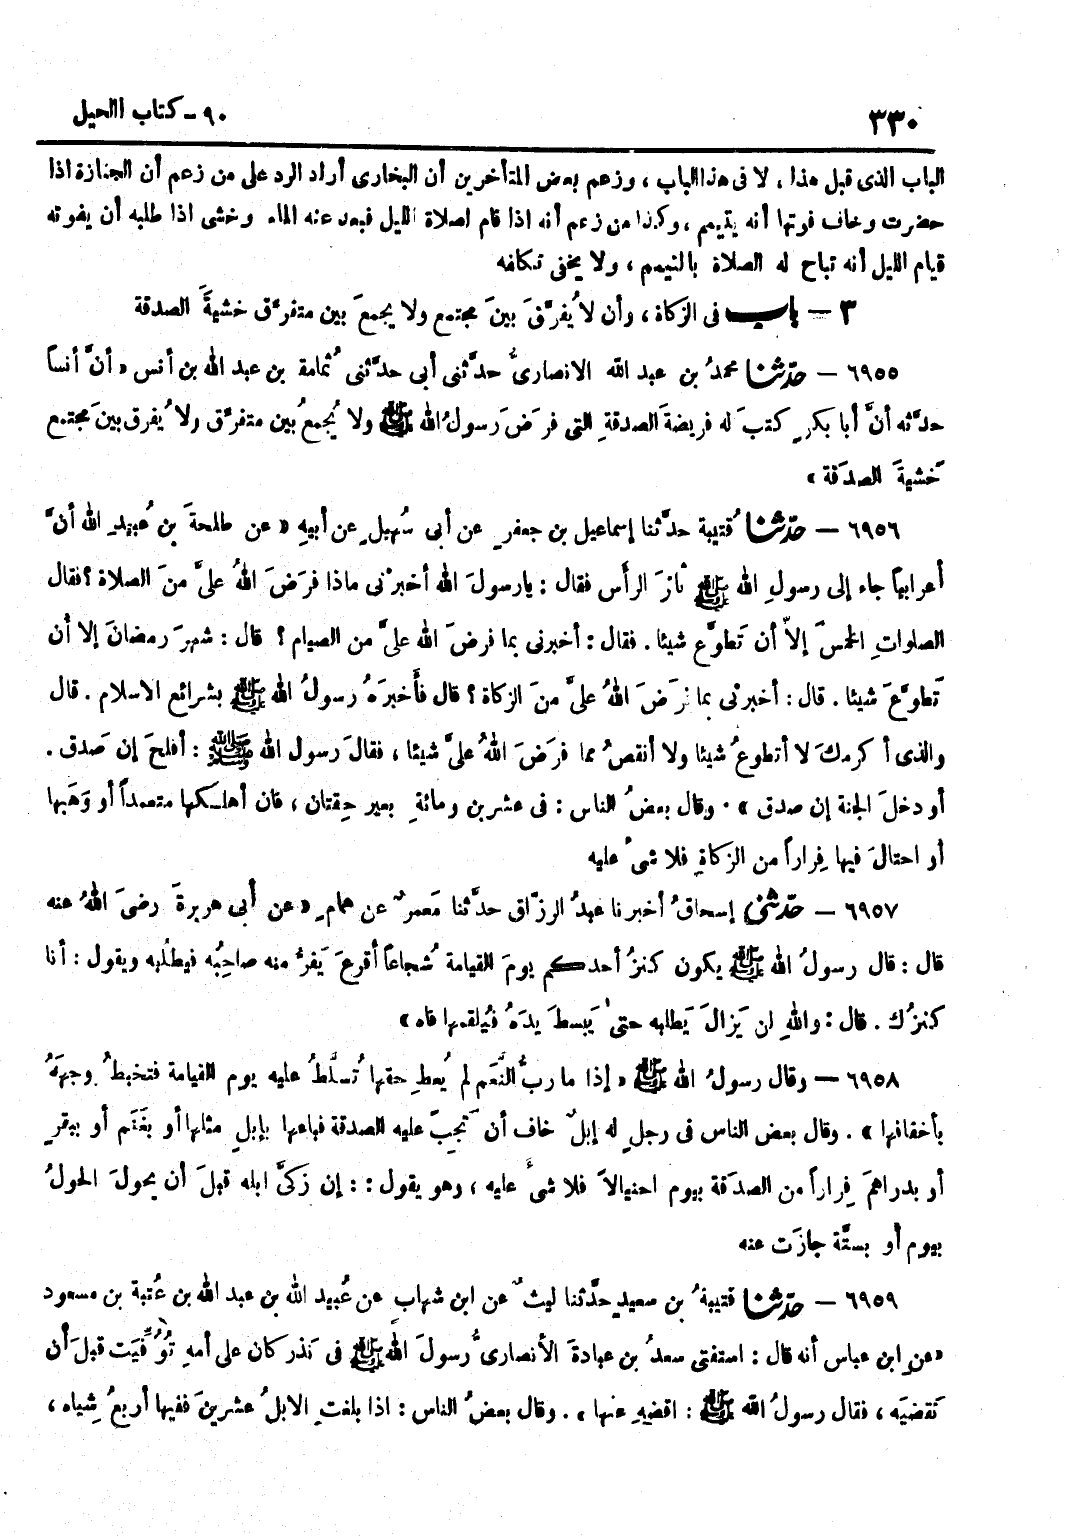 ٣٣٠ ٩٠ - كتاب الحيل
الباب الذى قبل هذا ، لا فى هذا الباب ، وزعم بعض المتأخرين أن البخارى أراد الرد على من زعم أن الجنازة اذا
حضرت وخاف فوتها أنه يتيمم ، وكذا من زعم أنه اذا قام لصلاة الليل فبعد عنه الماء وخشى اذا طلبه أن يفوته
قيام الليل أنه تباح له الصلاة بالتيمم ، ولا يخفى تكلفه
٣ — باب فى الزكاة ، وأن لا يُفرَّقَ بينَ مجتمع ولا يجمعَ بين متفرّق خشيةَ الصدقة
٦٩٥٥ — حدّثنا محمدُ بن عبد الله الانصارىُّ حدَّثنى أبى حدَّثنى ثُمامة بن عبد الله بن أنس « أنَّ أنساً
حدَّثه أنَّ أبا بكرٍ كتبَ له فريضةَ الصدقةِ التى فرَضَ رسولُ الله ﷺ ولا يُجمعُ بين متفرّق ولا يُفرق بينَ مجتمع
خَشيةَ الصدَقة »
٦٩٥٦ — حدّثنا قُتيبة حدَّثنا إسماعيل بن جعفرٍ عن أبى سُهيلٍ عن أبيهِ « عن طلحةَ بن عُبيدِ الله أنَّ
أعرابيًّا جاء إلى رسولِ الله ﷺ ثائرَ الرأس فقال : يا رسولَ الله أخبرْنى ماذا فرَضَ اللهُ علىَّ منَ الصلاة ؟ فقال
الصلواتِ الخمسَ إلاّ أن تَطوَّع شيئا . فقال : أخبرنى بما فرضَ الله علىَّ من الصيام ؟ قال : شهرَ رمضانَ إلا أن
تَطوَّعَ شيئا . قال : أخبرْنى بما فرَضَ اللهُ علىَّ منَ الزكاة ؟ قال فأخبرَهُ رسولُ الله ﷺ بشرائع الاسلام . قال
والذى أكرمكَ لا أتطوعُ شيئا ولا أنقصُ مما فرَضَ اللهُ علىَّ شيئا ، فقالَ رسول الله ﷺ : أفلحَ إن صَدق .
أو دخلَ الجنة إن صدق » . وقال بعضُ الناس : فى عشرين ومائةِ بعير حِقتان ، فان أهلكها متعمداً أو وَهَبها
أو احتالَ فيها فِراراً من الزكاةِ فلا شىءُ عليه
٦٩٥٧ — حدّثنى إسحاقُ أخبرنا عبدُ الرزّاق حدَّثنا مَعمرٌ عن همامٍ « عن أبى هريرةَ رضىَ اللهُ عنه
قال : قال رسولُ الله ﷺ يكون كنزُ أحدكم يومَ القيامة شُجاعاً أقرعَ يَفرُّ منه صاحبُه فيطلُبه ويقول : أنا
كنزُك . قال : واللهِ لن يَزالَ يَطلبه حتىٰ يَبسطَ يدَهُ فيُلقمها فاه »
٦٩٥٨ — وقال رسولُ الله ﷺ « إذا ما ربُّ النَّعَم لم يُعطِ حقها تُسلَّطُ عليه يوم القيامة فتخبطُ وجهَهُ
بأخفافها » . وقال بعض الناس فى رجلٍ له إبلٌ خاف أن تَجِبَ عليه الصدقة فباعها بإبلٍ مثلها أو بغَنَم أو ببقرٍ
أو بدراهمَ فِراراً من الصدَقة بيوم احتيالاً فلا شىءَ عليه ، وهو يقول : : إن زكَّى ابله قبلَ أن يحولَ الحولُ
بيوم أو بستَّة جازَت عنه
٦٩٥٩ — حدّثنا قتيبةُ بن سعيدٍ حدَّثنا ليثٌ عن ابن شهابٍ عن عُبيد الله بن عبد الله بن عُتبة بن مسعود
« عن ابن عباس أنه قال : استفتى سعدُ بن عبادةَ الأنصارىُّ رسولَ اللهِ ﷺ فى نَذر كان على أمهِ تُوُفّيَت قبلَ أن
تَقضيَه ، فقال رسولُ الله ﷺ : اقضهِ عنها » . وقال بعضُ الناس : اذا بلغتِ الابلُ عشرينَ ففيها أربعُ شِياه ،